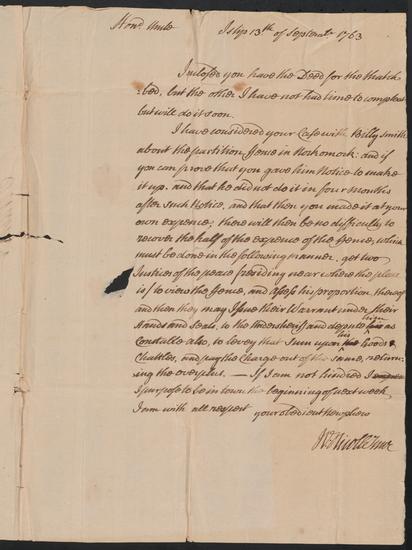 Hond Uncle Islip 13th of September 1763
Inclosed you have the Deed for the thatch
-bed, but the other I have not had time to compleat
but will do it soon.
I have considered your Case with Billy Smith
about the partition ffence in : and if
you can prove that you gave him Notice to make
it up, and that he did not do it in four months
after such Notice, and that then you made it at your
own expence; there will then be no difficulty to
recover the half of the expence of the ffence, which
must be done in the following manner. get two
Justices of the peace presiding near where the place
is / to view the ffence, and assess his proportion thereof
and then they may Issue their Warrant under their
Hands and Seals, to the Undersheriff and depute him as
Constable also, to Levey that Sum upon his Goods &
Chattles, and pay the Charge out of the same, return-
ing the overplus. — If I am not hindred
I purpose to be in town the beginning of next week
I am with all respect your obedient Nephew
Wm Nicoll Junr